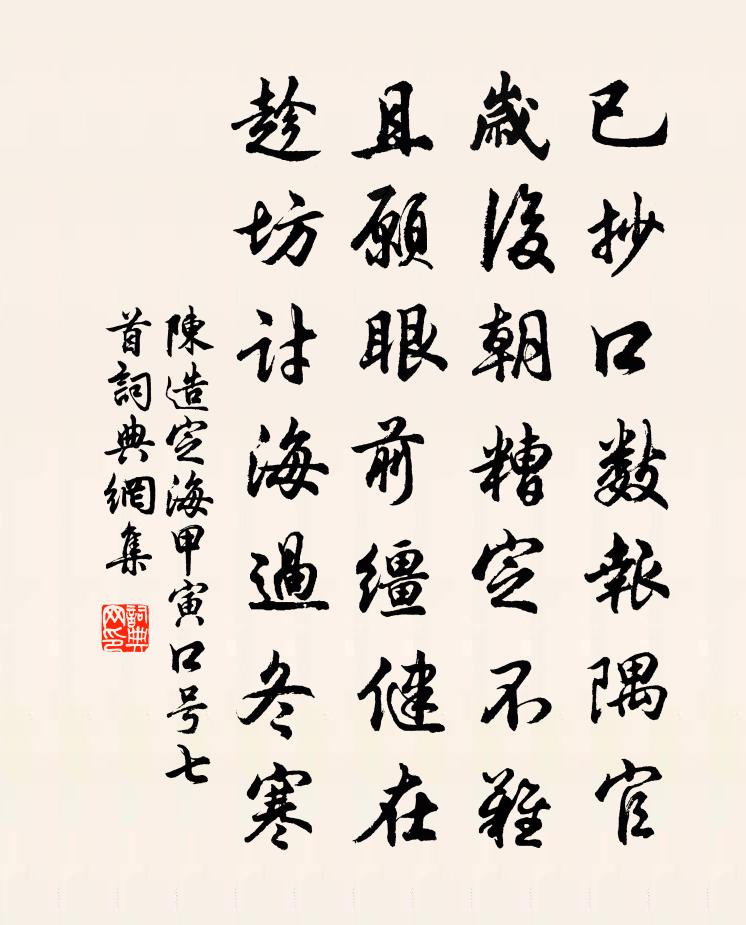 已抄口数報隅官
歲後朝糟定不難
且願眼前纆健在
趁坊討海過冬寒
陳造定海甲寅口号七
首詞典網集
詞典网印